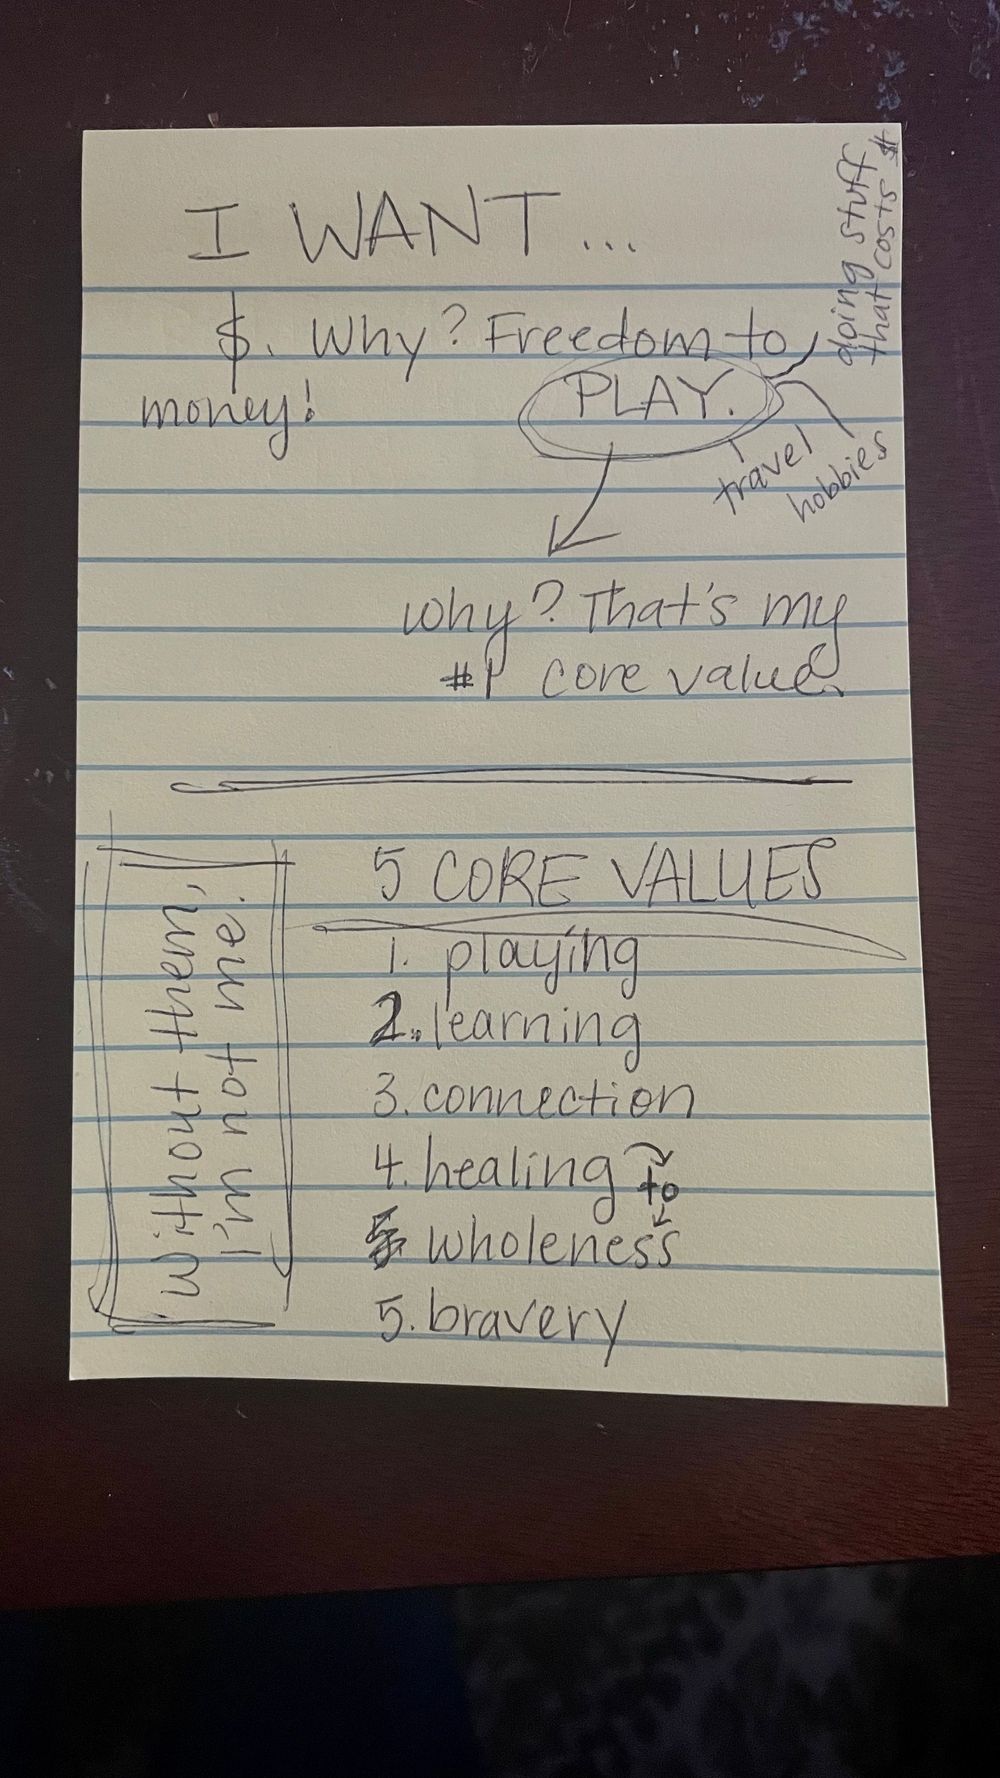 I WANT...
$. Why? Freedom to
money!
PLAY.
doing stuff
that costs $
travel
hobbies
why? That's my
#1 core value.
5 CORE VALUES
1. playing
2. learning
3. connection
4. healing to
wholeness
5. bravery
Without them,
I'm not me.